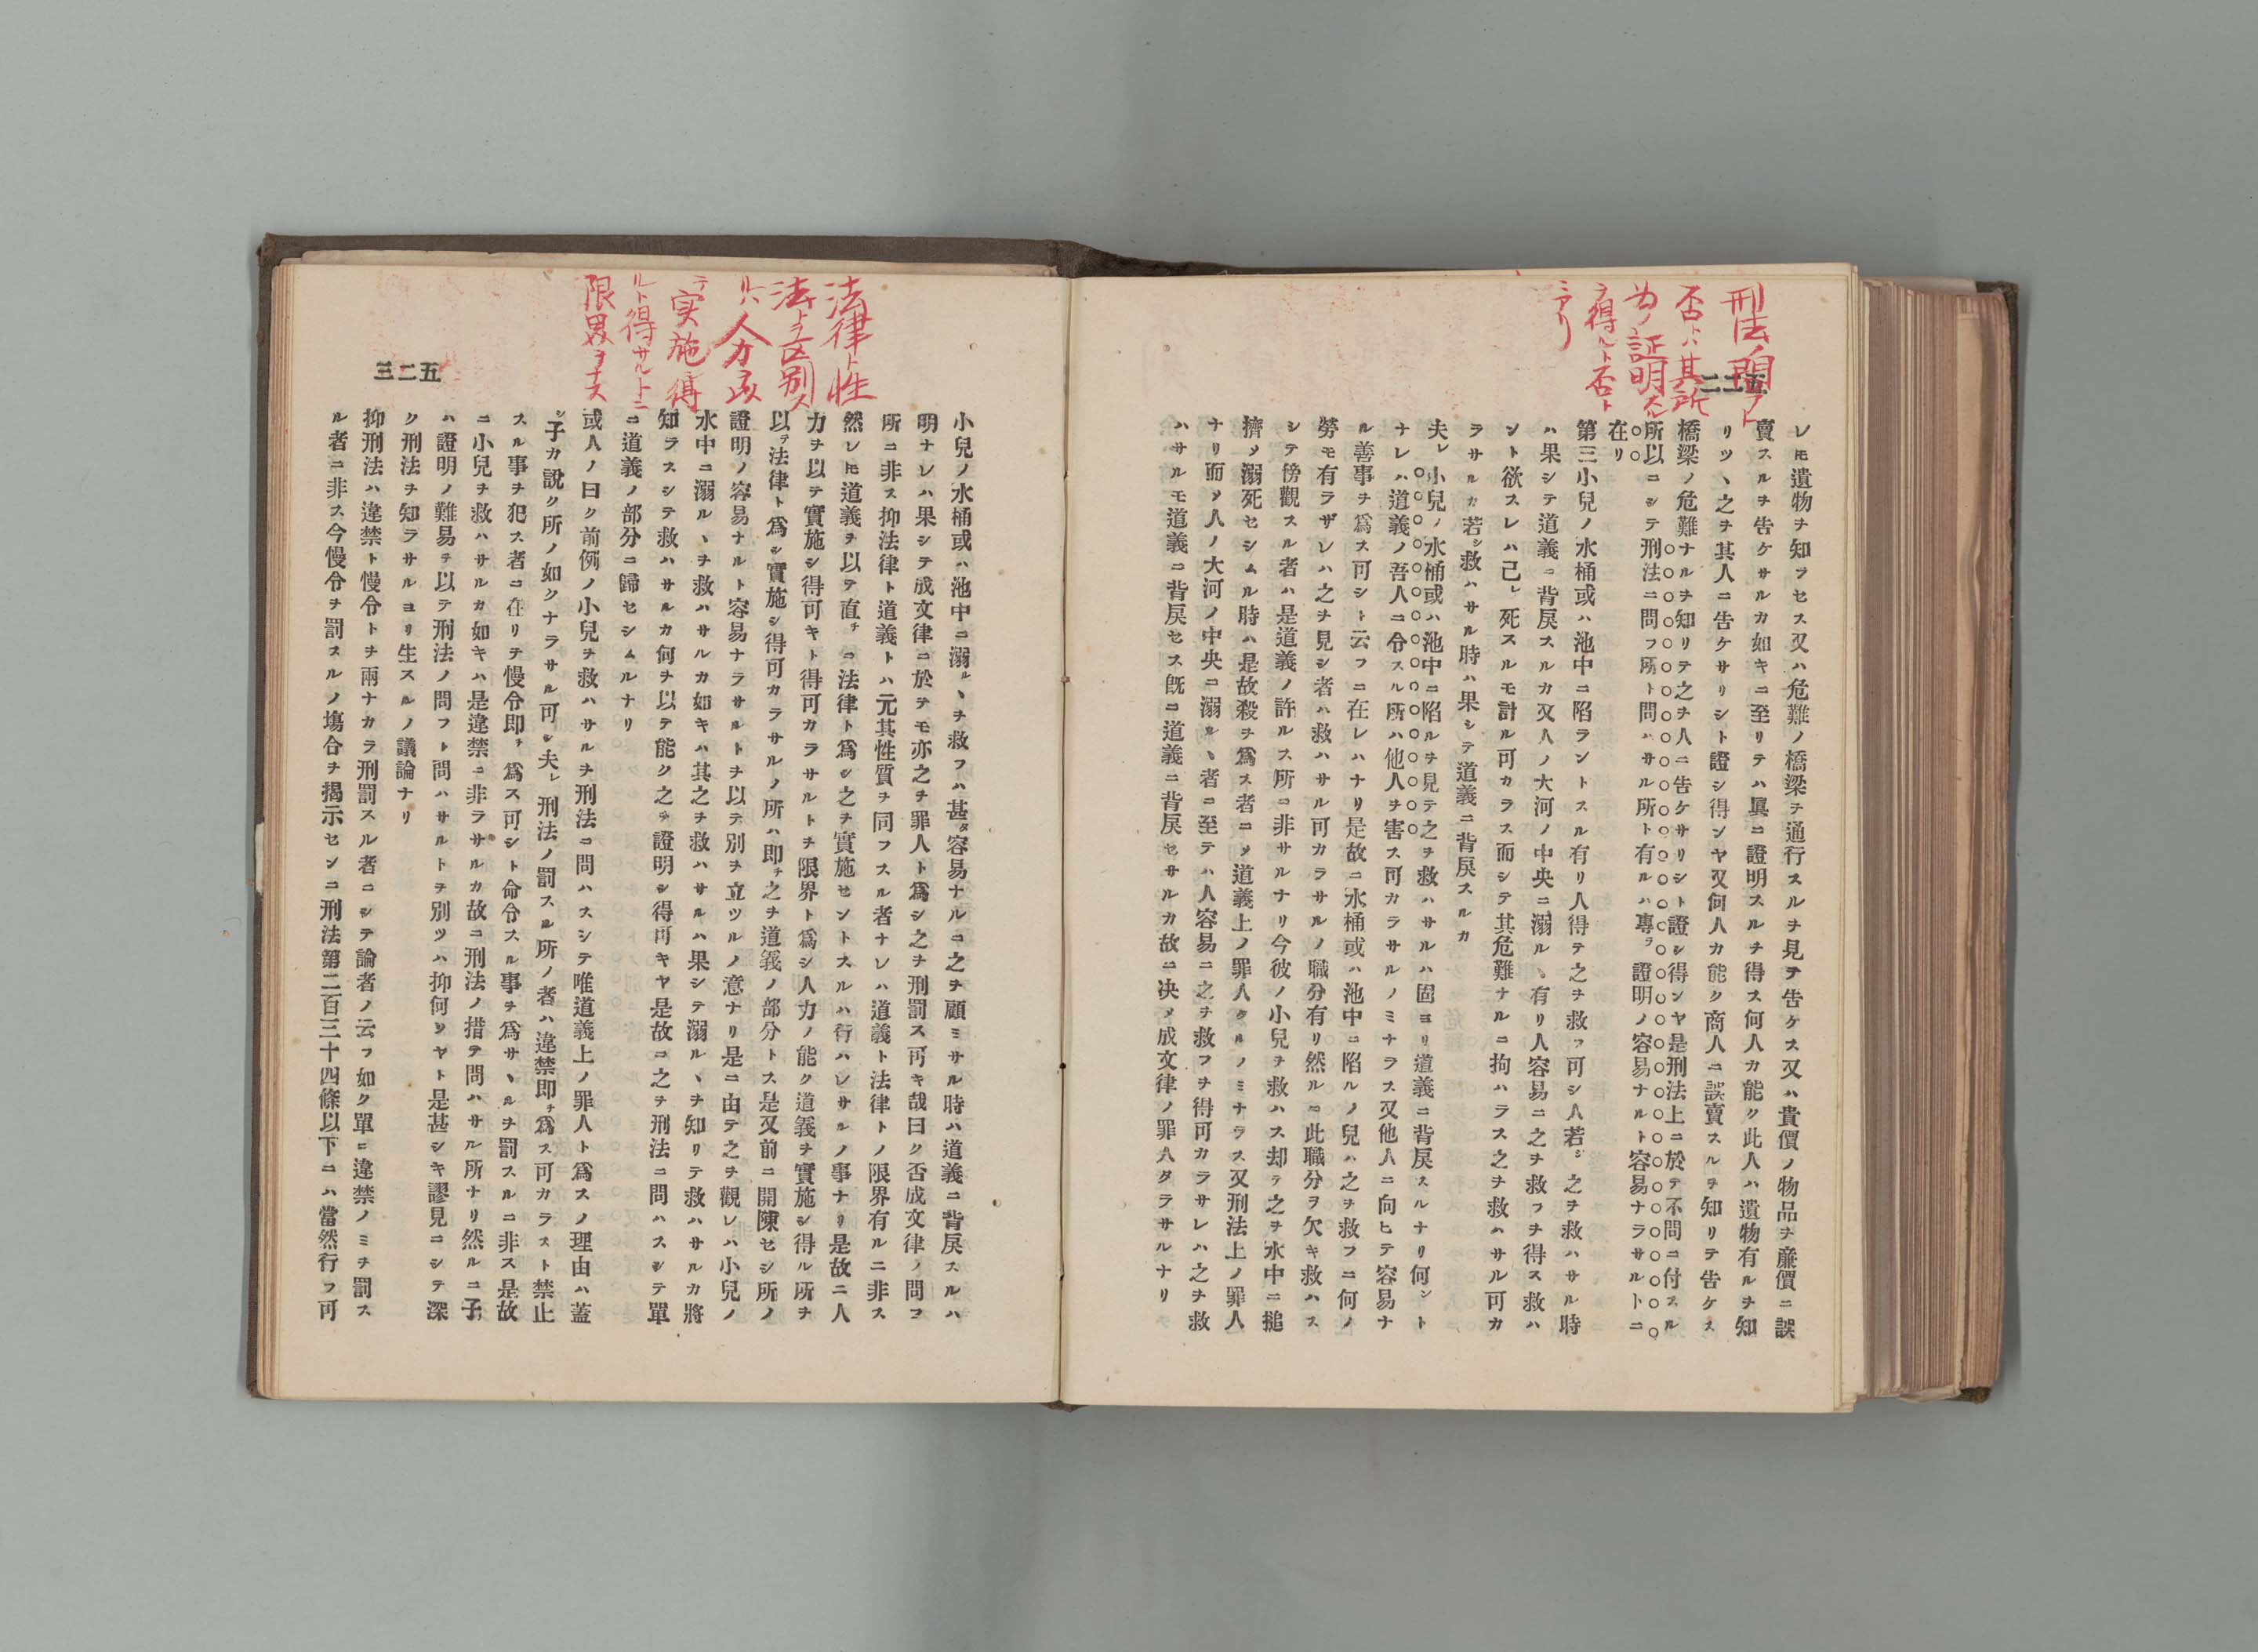 刑法ノ問フト
否トハ其所
為ノ証明スル
ヲ得ルト否ト
ニアリ
五二二
レ𪜈遺物ヲ知ラセス又ハ危難ノ橋梁ヲ通行スルヲ見テ告ケス又ハ貴價ノ物品ヲ廉價ニ誤
賣スルヲ告ケサルカ如キニ至リテハ異ニ證明スルヲ得ス何人カ能ク此人ハ遺物有ルヲ知
リツヽ之ヲ其人ニ告ケサリシト證シ得ンヤ又何人カ能ク商人ニ誤賣スルヲ知リテ告ケス
橋梁ノ危難ナルヲ知リテ之ヲ人ニ告ケサリシト證シ得ンヤ是刑法上ニ於テ不問ニ付スル
所以ニシテ刑法ニ問フ所ト問ハサル所ト有ルハ專ラ證明ノ容易ナルト容易ナラサルトニ
在リ
第三小兒ノ水桶或ハ池中ニ陷ラントスル有リ人得テ之ヲ救フ可シ人若シ之ヲ救ハサル時
ハ果シテ道義ニ背戻スルカ又人ノ大河ノ中央ニ溺ルヽ有リ人容易ニ之ヲ救フヲ得ス救ハ
ント欲スレハ己レ死スルモ計ル可カラス而シテ其危難ナルニ拘ハラス之ヲ救ハサル可カ
ラサルカ若シ救ハサル時ハ果シテ道義ニ背戻スルカ
夫レ小兒ノ水桶或ハ池中ニ陷ルヲ見テ之ヲ救ハサルハ固ヨリ道義ニ背戻スルナリ何ント
ナレハ道義ノ吾人ニ令スル所ハ他人ヲ害ス可カラサルノミナラス又他人ニ向ヒテ容易ナ
ル善事ヲ爲ス可シト云フニ在レハナリ是故ニ水桶或ハ池中ニ陷ルノ兒ハ之ヲ救フニ何ノ
勞モ有ラザレハ之ヲ見シ者ハ救ハサル可カラサルノ職分有リ然ルニ此職分ヲ欠キ救ハス
シテ傍觀スル者ハ是道義ノ許ルス所ニ非サルナリ今彼ノ小兒ヲ救ハス却テ之ヲ水中ニ搥
擠メ溺死セシムル時ハ是故殺ヲ爲ス者ニメ道義上ノ罪人タルノミナラス又刑法上ノ罪人
ナリ而メ人ノ大河ノ中央ニ溺ルヽ者ニ至テハ人容易ニ之ヲ救フヲ得可カラサレハ之ヲ救
ハサルモ道義ニ背戻セス既ニ道義ニ背戻セサルカ故ニ决メ成文律ノ罪人タラサルナリ
法律ト性
法トヲ区別ス
ルハ人力ヲ以
テ実施得
ルト得サルトニ
限界ヲナス
五二三
小兒ノ水桶或ハ池中ニ溺ルヽヲ救フハ甚タ容易ナルニ之ヲ顧ミサル時ハ道義ニ背戻スルハ
明ナレハ果シテ成文律ニ於テモ亦之ヲ罪人ト爲シ之ヲ刑罰ス可キ哉曰ク否成文律ノ問フ
所ニ非ス抑法律ト道義トハ元其性質ヲ同フスル者ナレハ道義ト法律トノ限界有ルニ非ス
然レ𪜈道義ヲ以テ直チニ法律ト爲シ之ヲ實施セントスルハ行ハレサルノ事ナリ是故ニ人
力ヲ以テ實施シ得可キト得可カラサルトヲ限界ト爲シ人力ノ能ク道義ヲ實施シ得ル所ヲ
以テ法律ト爲シ實施シ得可カラサルノ所ハ即チ之ヲ道義ノ部分トス是又前ニ開陳セシ所ノ
證明ノ容易ナルト容易ナラサルトヲ以テ別ヲ立ツルノ意ナリ是ニ由テ之ヲ觀レハ小兒ノ
水中ニ溺ルヽヲ救ハサルカ如キハ其之ヲ救ハサルハ果シテ溺ルヽヲ知リテ救ハサルカ將
知ラスシテ救ハサルカ何ヲ以テ能ク之ヲ證明シ得可キヤ是故ニ之ヲ刑法ニ問ハスシテ單
ニ道義ノ部分ニ歸セシムルナリ
或人ノ曰ク前例ノ小兒ヲ救ハサルヲ刑法ニ問ハスシテ唯道義上ノ罪人ト爲スノ理由ハ蓋
シ子カ説ク所ノ如クナラサル可シ夫レ刑法ノ罰スル所ノ者ハ違禁即チ爲ス可カラスト禁止
スル事ヲ犯ス者ニ在リテ慢令即チ爲ス可シト命令スル事ヲ爲サヽルヲ罰スルニ非ス是故
ニ小兒ヲ救ハサルカ如キハ是違禁ニ非ラサルカ故ニ刑法ノ措テ問ハサル所ナリ然ルニ子
ハ證明ノ難易ヲ以テ刑法ノ問フト問ハサルトヲ別ツハ抑何ソヤト是甚シキ謬見ニシテ深
ク刑法ヲ知ラサルヨリ生スルノ議論ナリ
抑刑法ハ違禁ト慢令トヲ兩ナカラ刑罰スル者ニシテ論者ノ云フ如ク單ニ違禁ノミヲ罰ス
ル者ニ非ス今慢令ヲ罰スルノ塲合ヲ揭示センニ刑法第二百三十四條以下ニハ當然行フ可